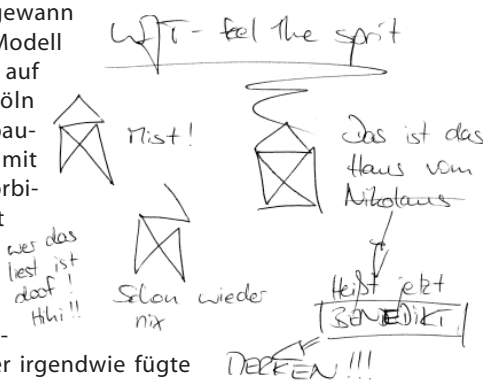 gewann
Modell
auf
öln
bau-
mit
orbi-
t
-
er irgendwie fügte
WJT - feel the sprit
Mist!
Das ist das
Haus vom
Nikolaus
wer das
liest ist
doof!
Hihi!!
Schon wieder
nix
Heißt jetzt
BENEDIKT
MERKEN!!!